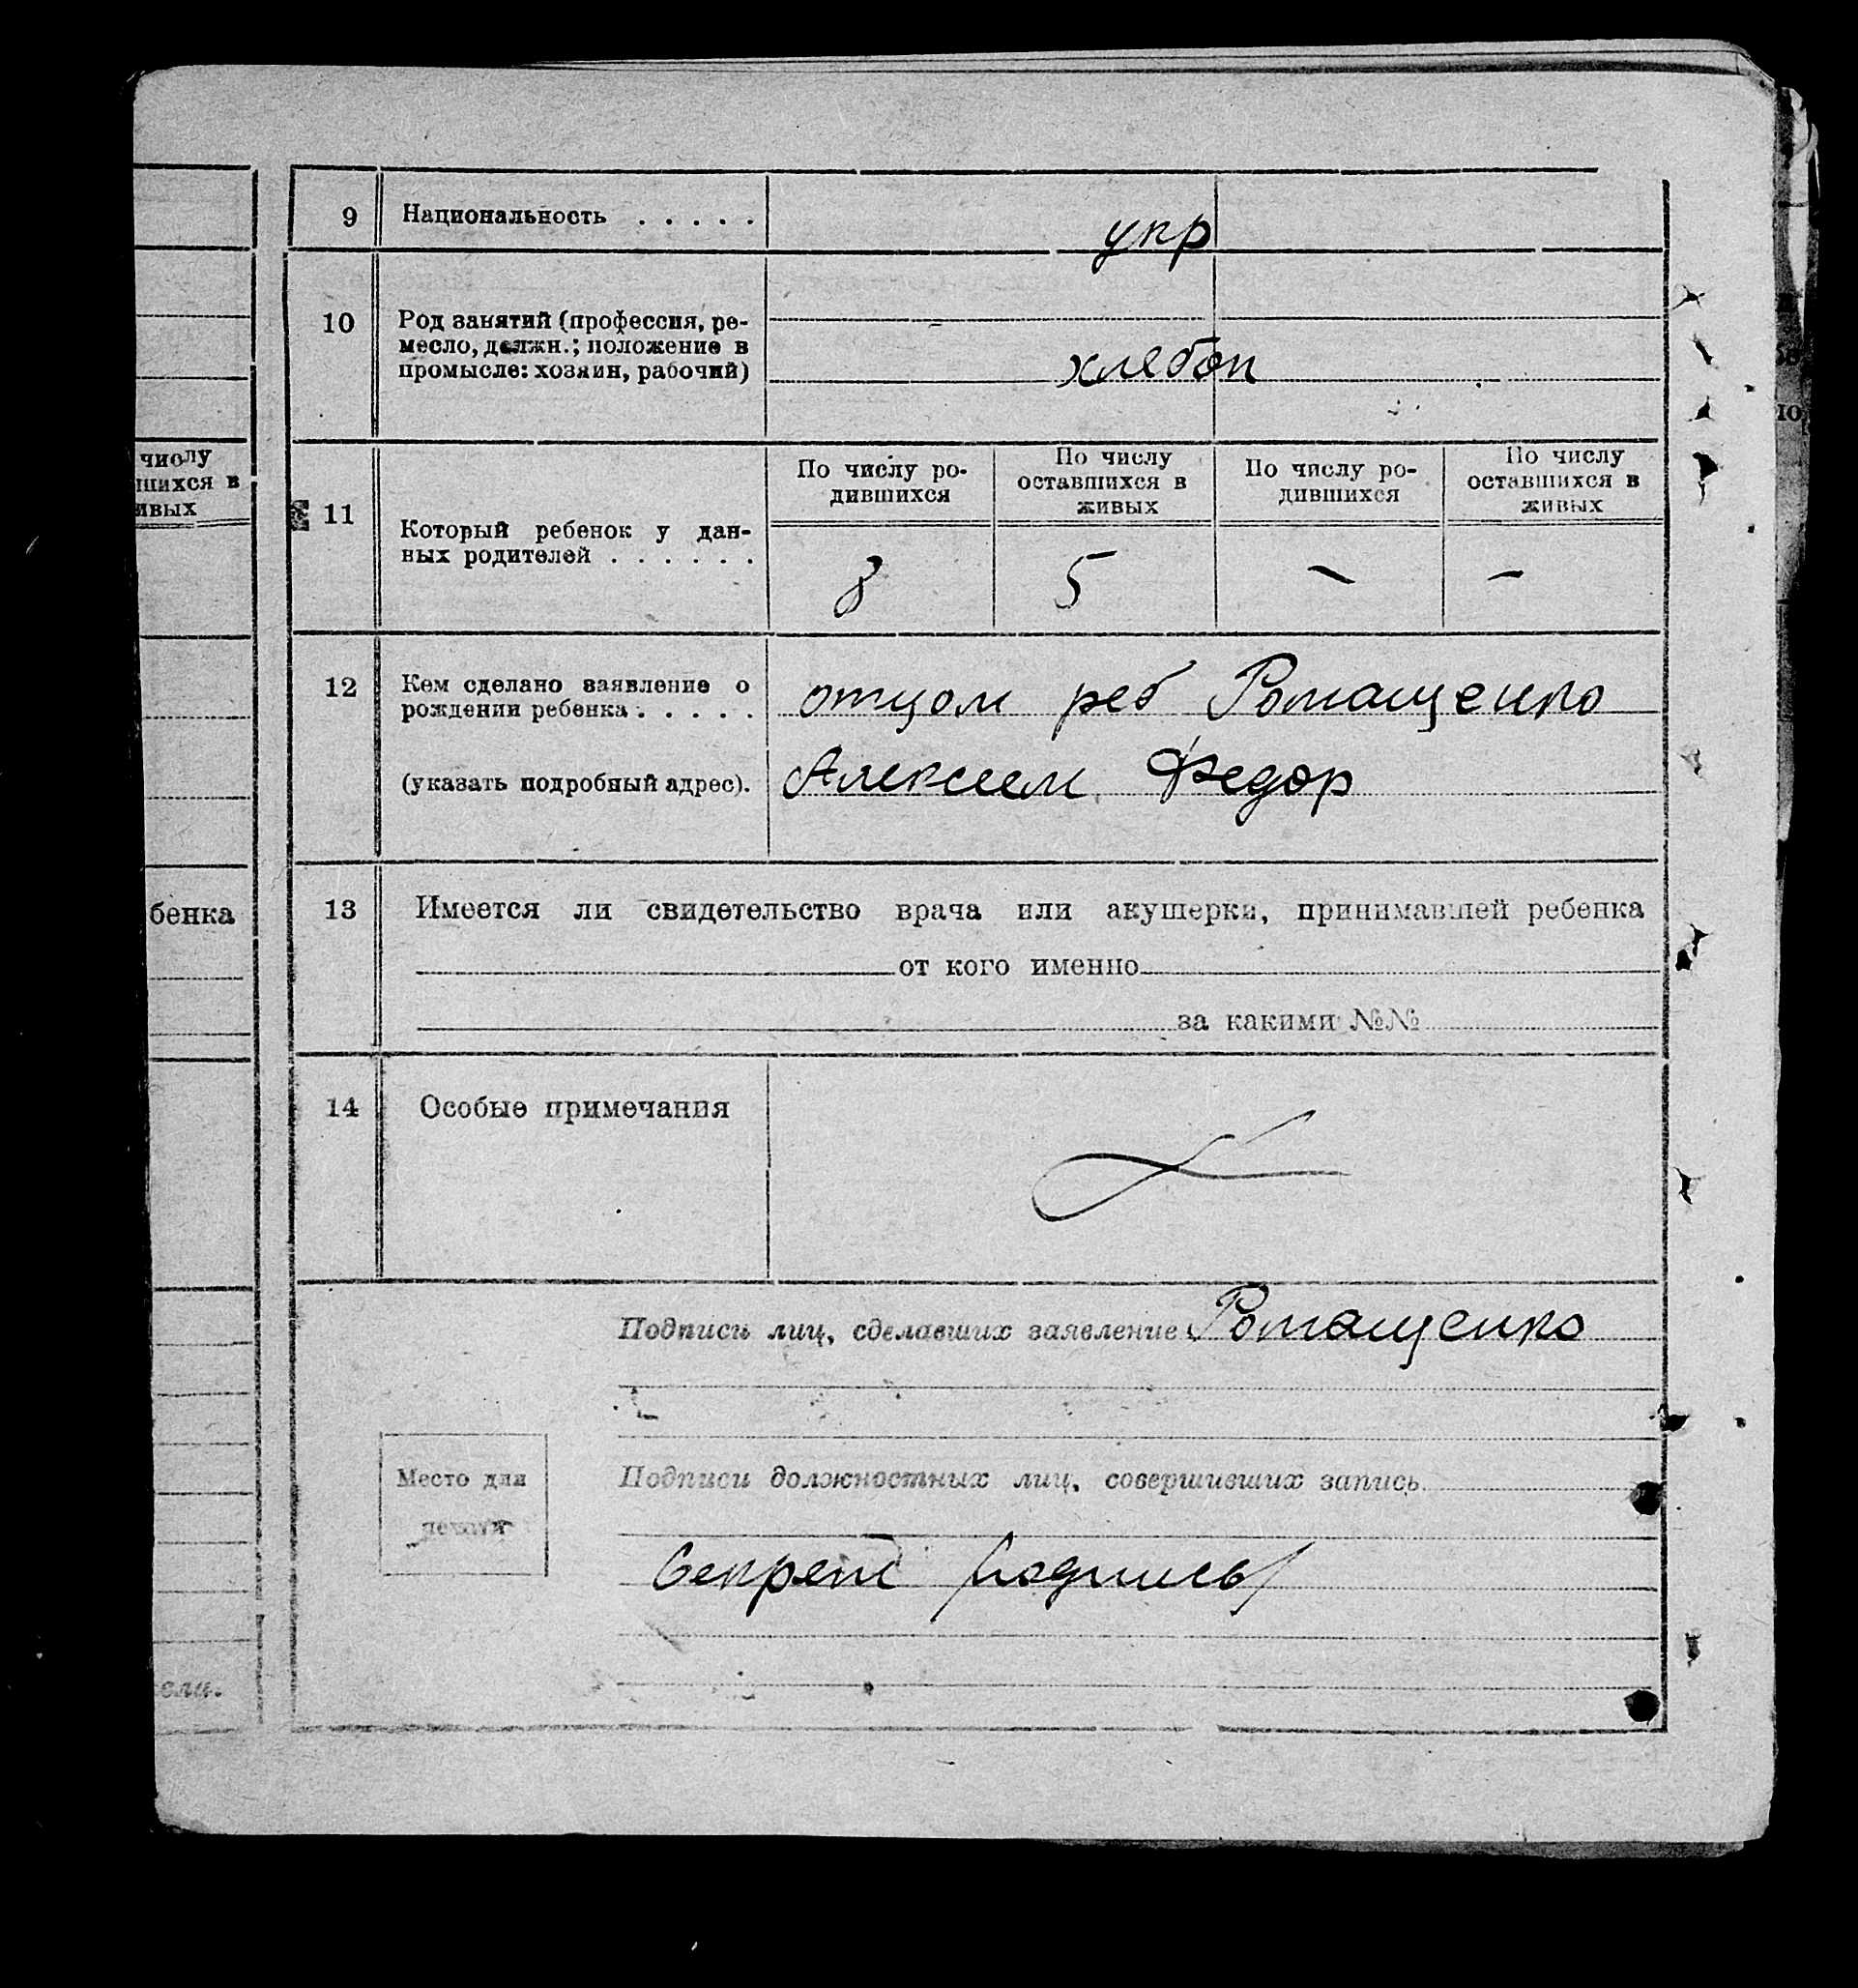 9 Национальность . . . . . укр
10 Род занятий (профессия, ре-
месло, должн.; положение в
промысле: хозяин, рабочий)
хлебоп
11 Который ребенок у дан-
ных родителей . . . . . .
По числу ро-
дившихся
По числу
оставшихся в
живых
По числу ро-
дившихся
По числу
оставшихся в
живых
8 5 — —
12 Кем сделано заявление о
рождении ребенка . . . . .
(указать подробный адрес).
отцом реб Ромащенко
Алексеем Федор
13 Имеется ли свидетельство врача или акушерки, принимавшей ребенка
от кого именно
за какими №№
14 Особые примечания
Подписи лиц, сделавших заявление Ромащенко
Место для
печати
Подписи должностных лиц, совершивших запись
Секрет /подпись/
числу
шихся в
ивых
бенка
ели.
10